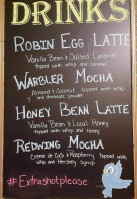 DRINKS
ROBIN EGG LATTE
Vanilla Bean & Salted Caramel
topped with whip and caramel
WARBLER MOCHA
Almond & Coconut topped with whip
and chocolate powder
HONEY BEAN LATTE
Vanilla Bean & Local Honey
topped with whip and honey
REDWING MOCHA
Creme de Coco & Raspberry topped with
whip and Hershey syrup
#Extrashotplease